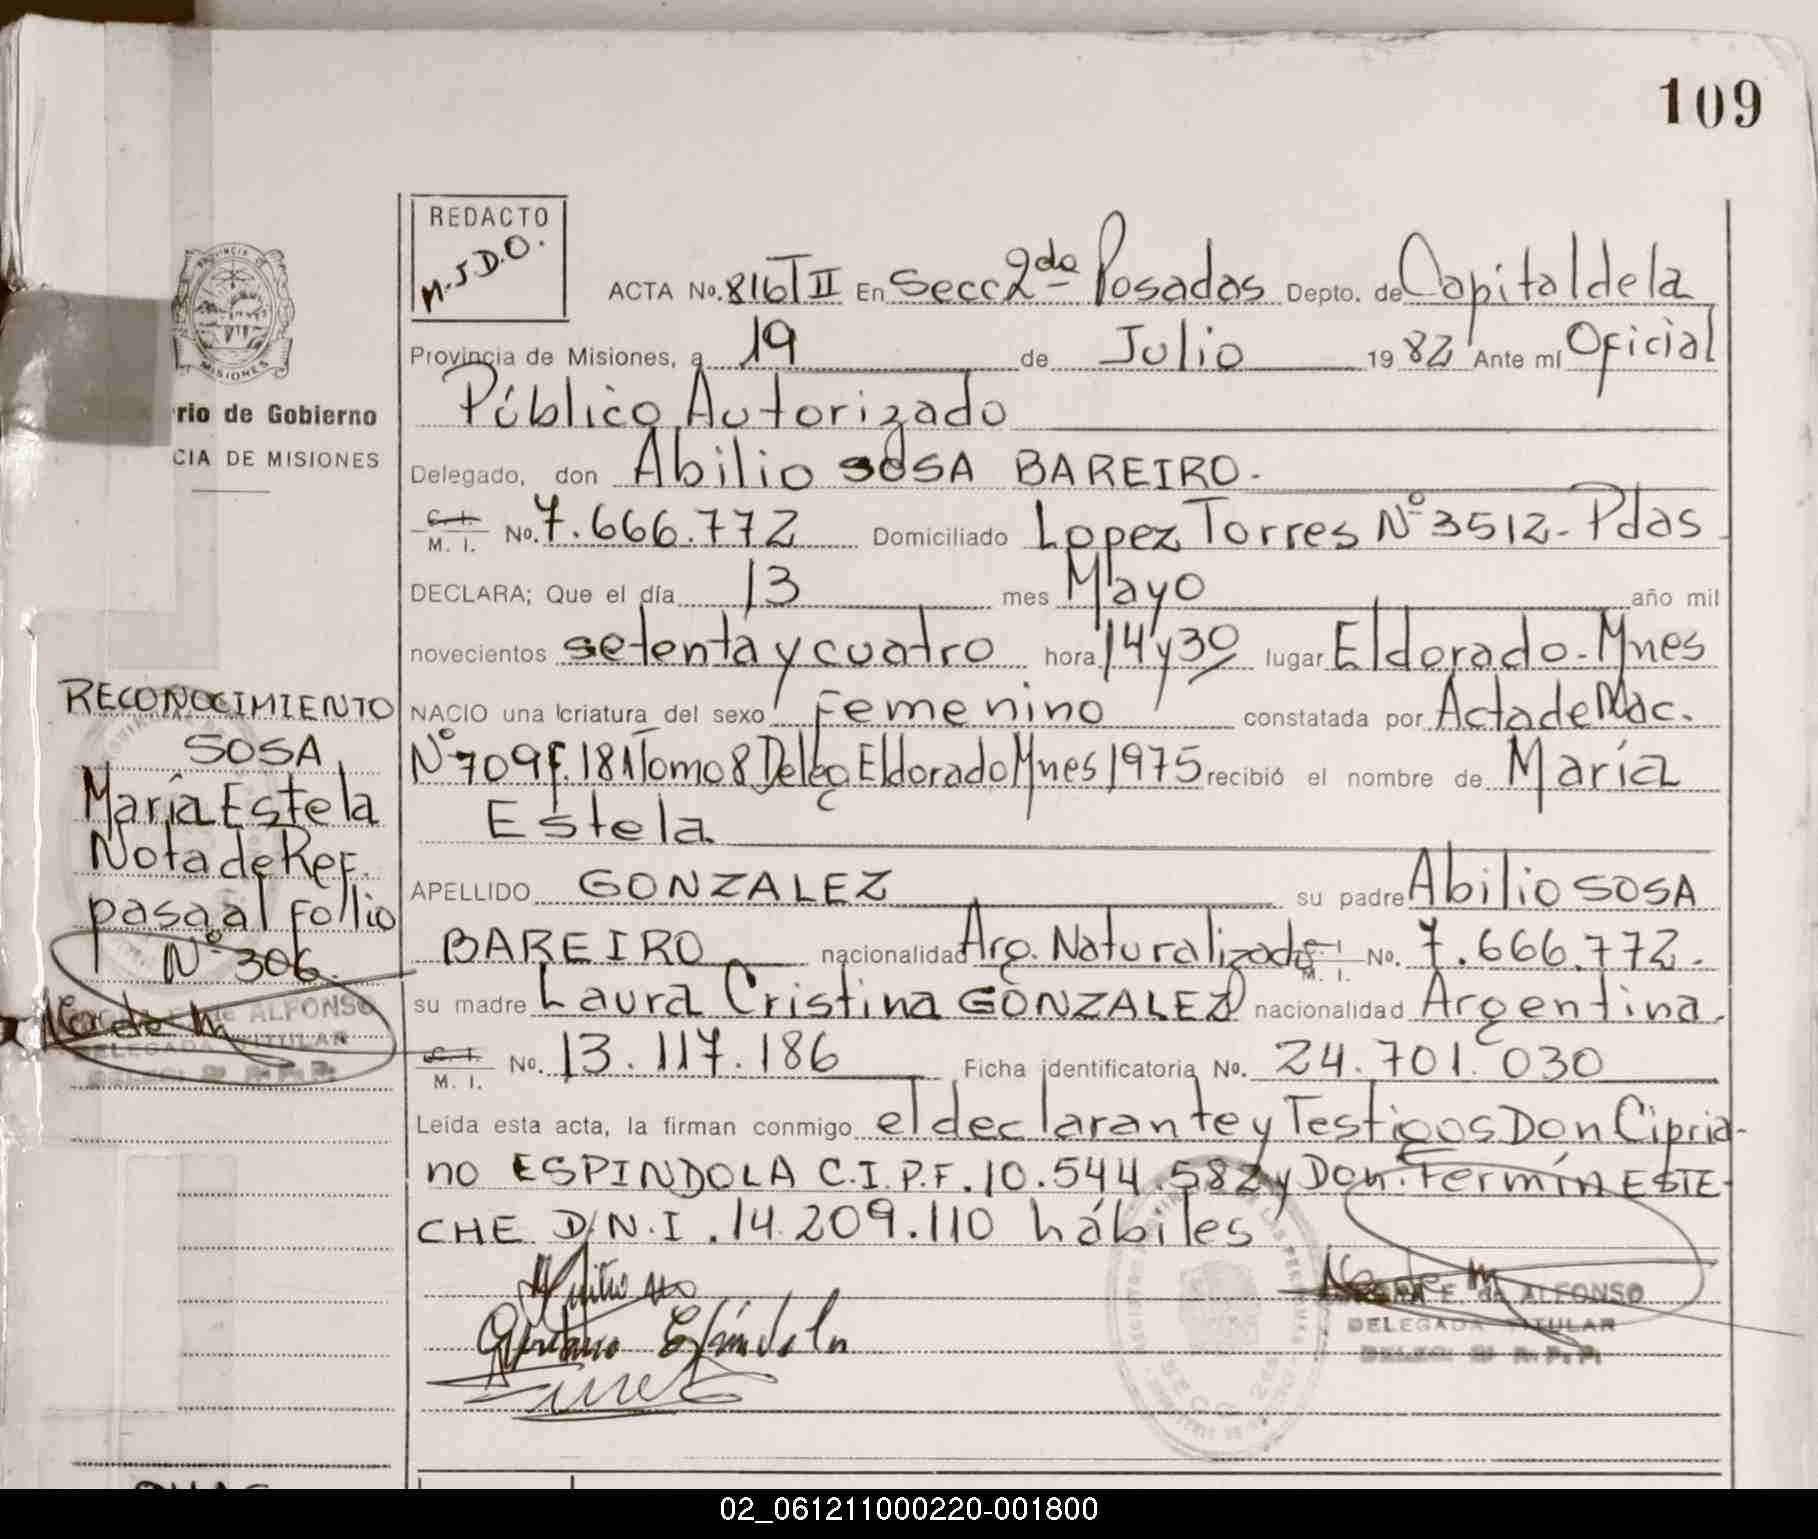 109
REDACTO
M.J.D.O.
ACTA No. 816 T II En Secc 2da Posadas Depto. de Capital de la
Provincia de Misiones, a 19 de Julio 1982 Ante mí Oficial
Público Autorizado
Delegado, don Abilio SOSA BAREIRO.
C. I. M. I. No. 7.666.772 Domiciliado Lopez Torres Nº 3512 - Pdas.
DECLARA; Que el día 13 mes Mayo año mil
novecientos setenta y cuatro hora 14 y 30 lugar Eldorado - Mnes
NACIO una criatura del sexo Femenino constatada por Acta de Nac.
Nº 709 F. 181 Tomo 8 Deleg Eldorado Mnes 1975 recibió el nombre de María
Estela
APELLIDO GONZALEZ su padre Abilio SOSA
BAREIRO nacionalidad Arg. Naturalizado C. I. M. I. No. 7.666.772.
su madre Laura Cristina GONZALEZ nacionalidad Argentina.
C. I. M. I. No. 13.117.186 Ficha identificatoria No. 24.701.030
Leída esta acta, la firman conmigo el declarante y Testigos Don Cipria-
no ESPINDOLA C.I.P.F. 10.544.582 y Don. Fermín ESTE-
CHE D.N.I. 14.209.110 hábiles
Espíndola
E. de ALFONSO
DELEGADA TITULAR
MISIONES
rio de Gobierno
CIA DE MISIONES
RECONOCIMIENTO
SOSA
María Estela
Nota de Ref.
pasa al Folio
Nº 306.
de ALFONSO
DELEGADA TITULAR
02_061211000220-001800